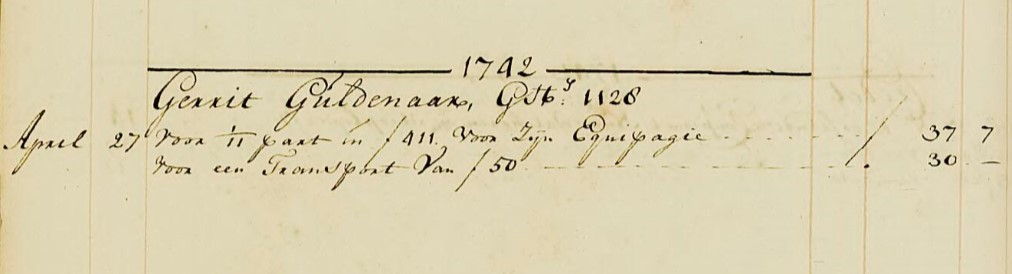 1742
Gerrit Guldenaar, GStb:s 1128
April 27 Voor 1/11 part in ƒ 411. Voor Zijn Equipagie ƒ 37 7
Voor een Transport Van ƒ 50 ƒ. 30 —